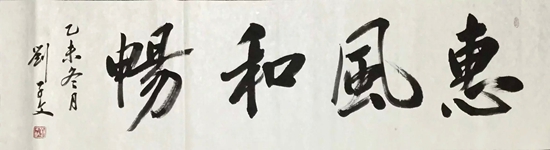 惠風和暢
乙未冬月
劉文